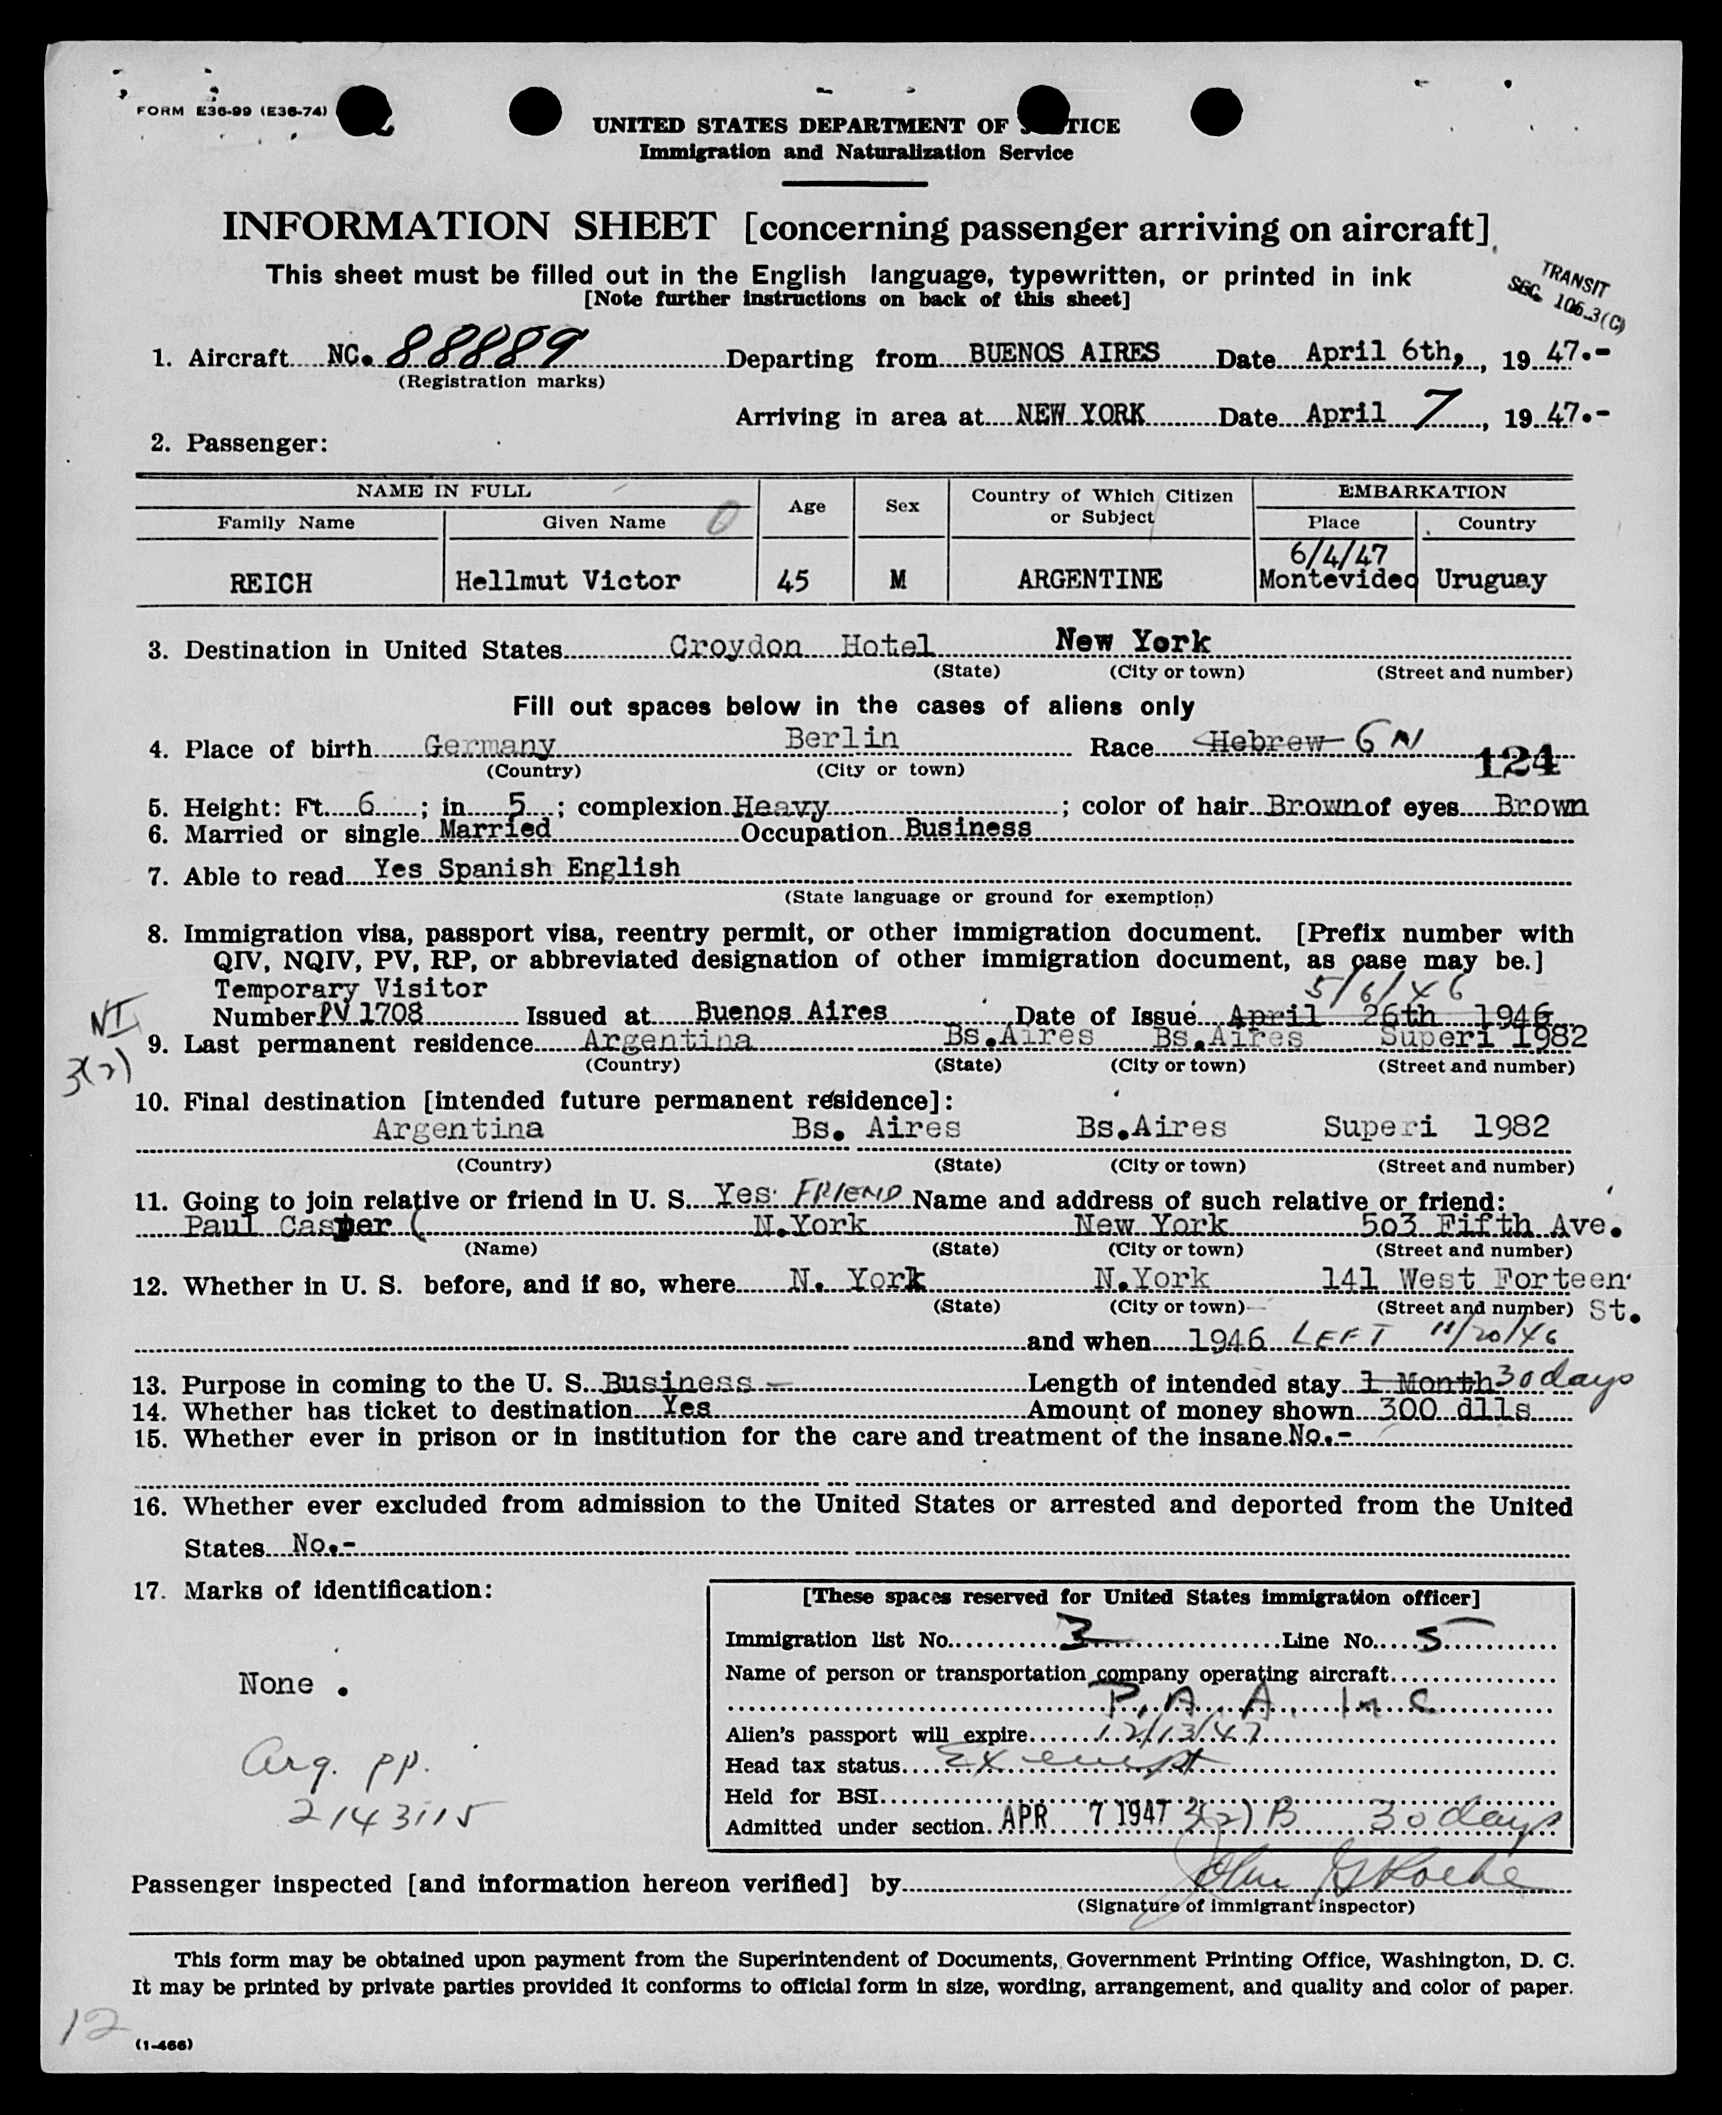 FORM E36-99 (E36-74)
UNITED STATES DEPARTMENT OF JUSTICE
Immigration and Naturalization Service
INFORMATION SHEET [concerning passenger arriving on aircraft]
This sheet must be filled out in the English language, typewritten, or printed in ink
[Note further instructions on back of this sheet]
TRANSIT
SEC. 106.3(C)
1. Aircraft NC. 88889 Departing from BUENOS AIRES Date April 6th, 1947.-
(Registration marks)
Arriving in area at NEW YORK Date April 7, 1947.-
2. Passenger:
NAME IN FULL Age Sex Country of Which Citizen or Subject EMBARKATION
Family Name Given Name Place Country
6/4/47
REICH Hellmut Victor 45 M ARGENTINE Montevideo Uruguay
3. Destination in United States Croydon Hotel New York
(State) (City or town) (Street and number)
Fill out spaces below in the cases of aliens only
4. Place of birth Germany Berlin Race Hebrew G N 124
(Country) (City or town)
5. Height: Ft. 6; in 5; complexion Heavy; color of hair Brown of eyes Brown
6. Married or single Married Occupation Business
7. Able to read Yes Spanish English
(State language or ground for exemption)
8. Immigration visa, passport visa, reentry permit, or other immigration document. [Prefix number with
QIV, NQIV, PV, RP, or abbreviated designation of other immigration document, as case may be.]
Temporary Visitor 5/6/46
NI Number PV 1708 Issued at Buenos Aires Date of Issue April 26th 1946
3(2) 9. Last permanent residence Argentina Bs.Aires Bs.Aires Superi 1982
(Country) (State) (City or town) (Street and number)
10. Final destination [intended future permanent residence]:
Argentina Bs. Aires Bs.Aires Superi 1982
(Country) (State) (City or town) (Street and number)
11. Going to join relative or friend in U. S. Yes FRIEND Name and address of such relative or friend:
Paul Casper ( N.York New York 503 Fifth Ave.
(Name) (State) (City or town) (Street and number)
12. Whether in U. S. before, and if so, where N. York N.York 141 West Forteen
(State) (City or town) (Street and number) St.
and when 1946 LEFT 11/20/46
13. Purpose in coming to the U. S. Business - Length of intended stay 1 Month 30 days
14. Whether has ticket to destination Yes Amount of money shown 300 dlls
15. Whether ever in prison or in institution for the care and treatment of the insane No.-
16. Whether ever excluded from admission to the United States or arrested and deported from the United
States No.-
17. Marks of identification:
None .
Arg. pp.
2143115
[These spaces reserved for United States immigration officer]
Immigration list No. 3 Line No. 5
Name of person or transportation company operating aircraft
P. A. A. Inc
Alien's passport will expire 12/13/47
Head tax status Exempt
Held for BSI
Admitted under section APR 7 1947 3(2) B 30 days
Passenger inspected [and information hereon verified] by John
(Signature of immigrant inspector)
This form may be obtained upon payment from the Superintendent of Documents, Government Printing Office, Washington, D. C.
It may be printed by private parties provided it conforms to official form in size, wording, arrangement, and quality and color of paper.
12
(1-466)